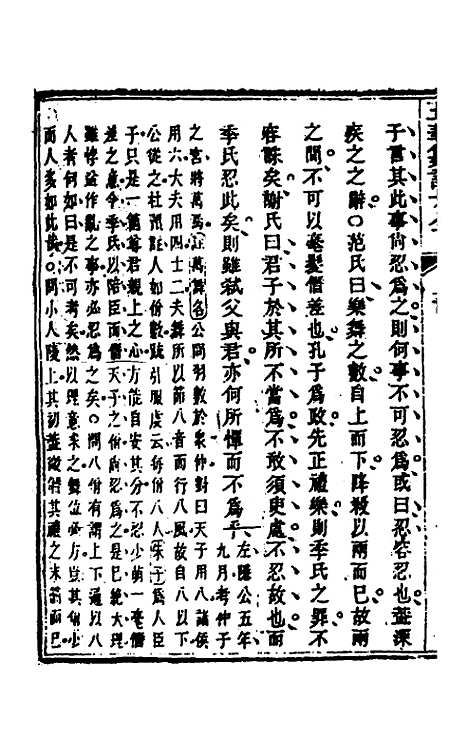 子言其此事尚忍爲之則何事不可忍爲或曰忍容忍也蓋深
疾之之辭○范氏曰樂舞之數自上而下降殺以兩而已故兩
之間不可以毫髮僭差也孔子爲政先正禮樂則季氏之罪不
容誅矣謝氏曰君子於其所不當爲不敢須臾處不忍故也而
季氏忍此矣則雖弑父與君亦何所憚而不爲乎 左隱公五年
九月考仲子
之宮將萬焉註萬舞名公問羽數於衆仲對曰天子用八諸侯
用六大夫用四士二夫舞所以節八音而行八風故自八以下
公從之杜預註人如佾數疏引服虔云每佾八人朱子爲人臣
子只是一箇尊君親上之心方能自安其分不忍少萌一毫僭
差之意今季氏以陪臣而僭天子之佾尚忍爲之是已絶大理
雖悖逆作亂之事亦必忍爲之矣○問八佾有謂上下通以八
人者何如曰是不可考矣然以理意求之舞位必方豈其佾少
而人多如此哉○問小人陵上其初蓋微僭其禮之末節而已